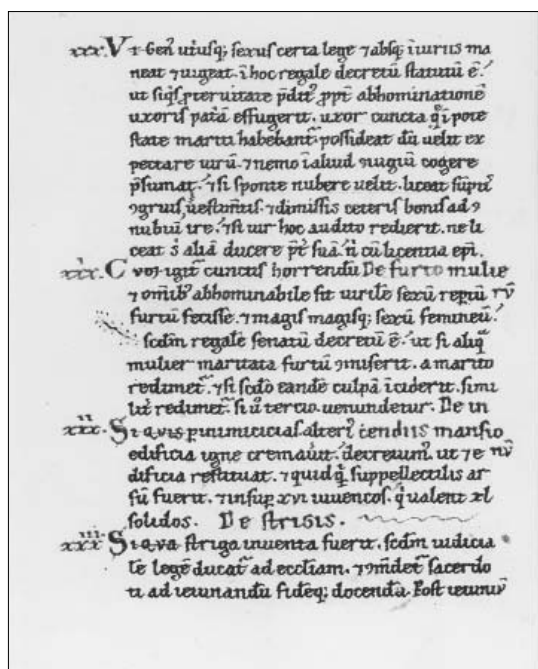 xxx. Ut Gen' utriusq; sexus certa lege ⁊ absq; iniuriis ma
neat ⁊ uigeat. i hoc regale decretū statutū ē.
ut siq̄s pteruitate pditꝰ ꝓpt' abhominationē
uxoris patā effugerit. uxor cuncta q̄ i pote
state mariti habebant'. possideat dū uelit ex
pectare uirū. ⁊ nemo i aliud nugiū cogere
p̄sumat. ⁊ si sponte nubere uelit. liceat sūptiſ
ꝯgruis uestimtis. ⁊ dimissis ceteris bonis ad ꝯ
nubiū ire. ⁊ si uir hoc audito redierit. ne li
ceat s̄ aliā ducere p̄t' suā. n̄ cū licentia epi.
xxxi. Cvm igit' cunctis horrendū De furto mulie
⁊ omib' abhominabile sit uirilē sexū reptū rū
furtū fecisse. ⁊ magis magisq; sexū femineū.
scdm regale senatū decretū ē. ut si aliq̄
mulier maritata furtū ꝯmiserit. a marito
redimet'. ⁊ si scdo eandē culpā iciderit. simi
lit' redimet'. si ū tercio. uenundetur. De in
xxxii. Si qvis p inimicicias alteri' cendiis mansio
edificia igne cremau'it. decreuim'. ut ⁊ e nū
dificia restituat. ⁊ quidq̄d suppellectilis ar
sū fuerit. ⁊ insup xvi iuuencos. q̄ ualent xl
solidos. De strigis.
xxxiii. Si qva striga inuenta fuerit. scdm iudicia
lē legē ducat' ad eccliam. ⁊ ꝯmdet' sacerdo
ti ad ieiunandū fidēq; docendā. Post ieiuniū